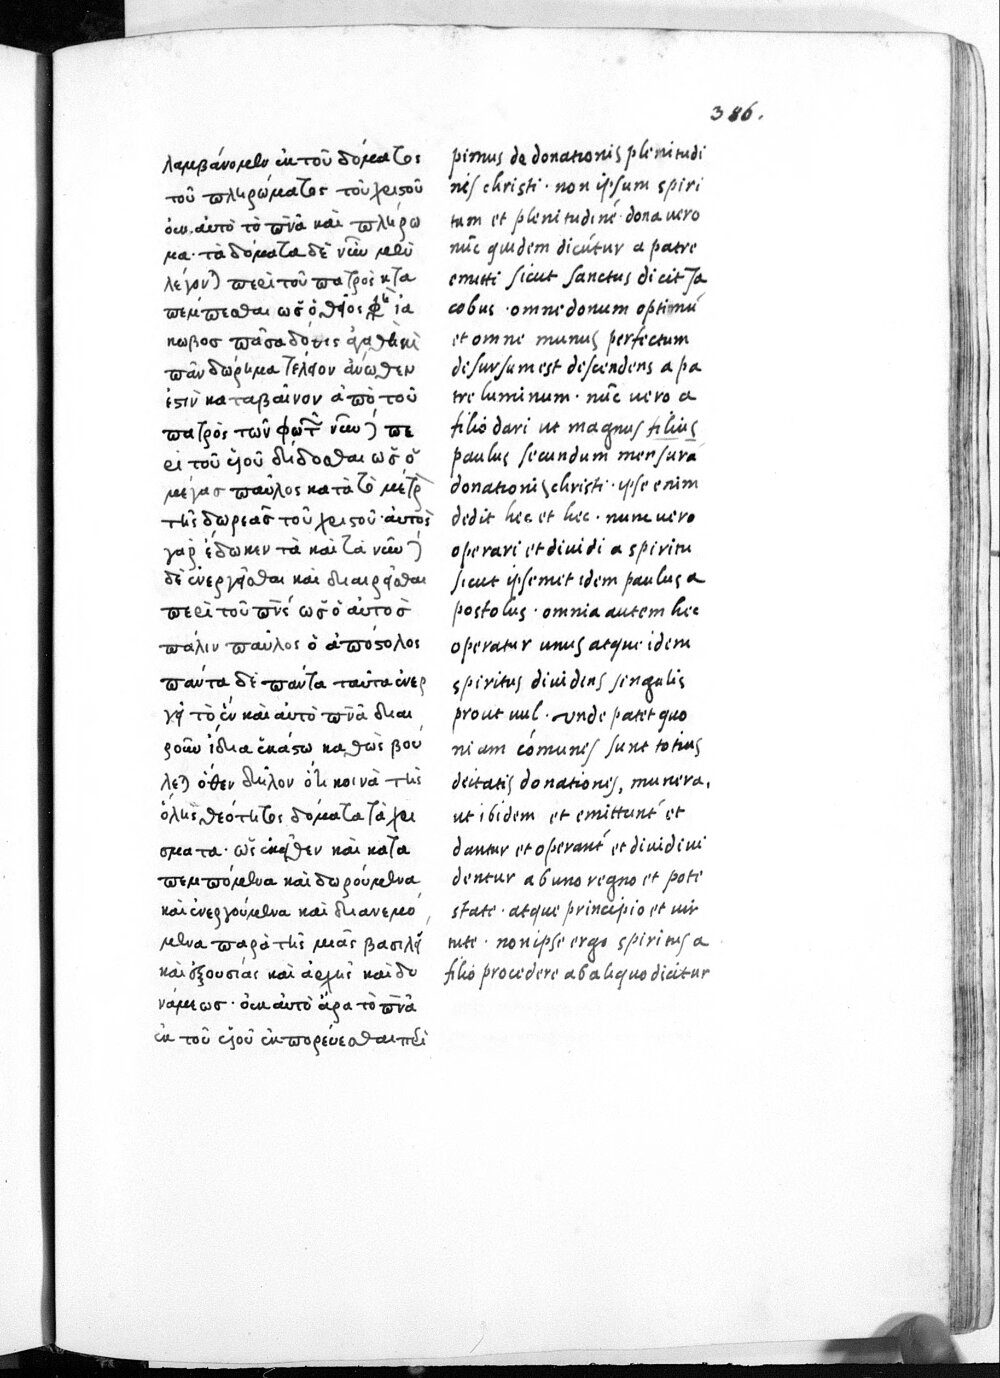 386.
λαμβάνομεν ἐκ τοῦ δόματος
τοῦ πληρώματος τοῦ χριστοῦ
οὐκ αὐτὸ τὸ πνᾶ καὶ πλήρω
μα· τὰ δόματα δὲ νῦν μὲν
περὶ τοῦ πατρὸς
πέμπεσθαι ὡς ὁ
κωβοσ πᾶσα δόσις ἀγαθὴ καὶ
πᾶν δώρημα τέλειον ἄνωθεν
ἐστὶν καταβαῖνον ἀπὸ τοῦ
πατρὸς τῶν φώτ νῦν πε
ρὶ τοῦ υἱοῦ δίδοσθαι ὡς ὁ
μέγασ παῦλος κατὰ τὸ μέτρ
τῆς δωρεᾶσ τοῦ χριστοῦ· αὐτὸς
γὰρ ἔδωκεν τὰ καὶ τὰ νῦν
δὲ ἐνεργεῖσθαι καὶ διαιρεῖσθαι
περὶ τοῦ πνς ὡς ὁ αὐτοσ
πάλιν παῦλος ὁ ἀπόστολος
πάντα δὲ πάντα ταῦτα ἐνερ
γεῖ τὸ ἓν καὶ αὐτὸ πνᾶ διαι
ροῦν ἰδία ἑκάστω καθὼς βού
λε ὅθεν δῆλον ὅτι κοινὰ τῆς
ὅλης θεότητος δόματα τὰ χαρί
σματα· ὡς ἐκεῖθεν καὶ κατα
πεμπόμενα καὶ δωρούμενα
καὶ ἐνεργούμενα καὶ διανεμό
μενα παρὰ τῆς μιᾶς βασιλεί
καὶ ἐξουσίας καὶ ἀρχῆς καὶ δυ
νάμεωσ· οὐκ αὐτὸ ἄρα τὸ πνᾶ
ἐκ τοῦ υἱοῦ ἐκπορεύεσθαι
pimus de donationis plenitudi
nis christi · non ipsum spiri
tum et plenitudinē · dona vero
nūc quidem dicūtur a patre
emitti sicut sanctus dicit Ja
cobus · omne donum optimū
et omne munus perfectum
desursum est descendens a pa
tre luminum · nūc vero a
filio dari ut magnus filius
paulus secundum mensurā
donationis christi · ipse enim
dedit hec et hec · num vero
operari et dividi a spiritu
sicut ipsemet idem paulus a
postolus · omnia autem hec
operatur unus atque idem
spiritus dividens singulis
prout vul · unde patet quo
niam cōmunes sunt totius
deitatis donationes, munera,
ut ibidem et emittunt et
dantur et operant et dividivi
dentur ab uno regno et pote
state · atque principio et vir
tute · non ipse ergo spiritus a
filio procedere ab aliquo dicitur